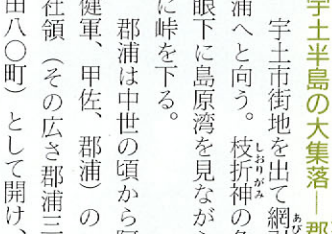 宇土半島の大集落―郡
宇土市街地を出て網
浦へと向う。枝折神の
眼下に島原湾を見なが
に峠を下る。
郡浦は中世の頃から阿
健軍、甲佐、郡浦）の
社領（その広さ郡浦三
田八〇町）として開け、